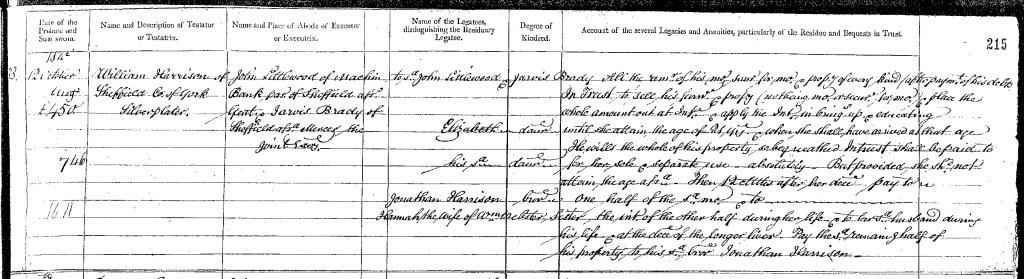 Date of the Probate and Sum sworn.
Name and Description of Testator or Testatrix.
Name and Place of Abode of Executor or Executrix.
Name of the Legatees, distinguishing the Residuary Legatee.
Degree of Kindred.
Account of the several Legacies and Annuities, particularly of the Residue and Bequests in Trust.
215
October William Harrison of John Littlewood of Machin to sd. John Littlewood & Jarvis Brady All the remr. of his mo. for mo. & propy of every kind (after paymt. of his debts
Sheffield Co. of York Bank par. of Sheffield afsd. In Trust, to sell his & propy (not being mo. or secur. for mo.) & place the
£450 Silverplater. Gent. & Jarvis Brady of whole amount out at Int. & apply the Int. in bring. up & educating
Sheffield afsd. the Elizabeth daur. until she attain the age of 21 yrs. & when she shall have arrived at that age
Joint Exors. He wills the whole of his property so bequeathed In trust shall be paid to
746 his sd. daur. for her sole & separate use absolutely - But provided she shd. not
attain the age afsd. Then 12 after her dece. pay to
Jonathan Harrison bror. one half of the sd. mo. & to
Hannah, the wife of Sister, the int. of the other half during her life & to her sd. husband during
his life & at the dece. of the longer liver Pay the sd. remaing half of
his property to his sd. bror. Jonathan Harrison